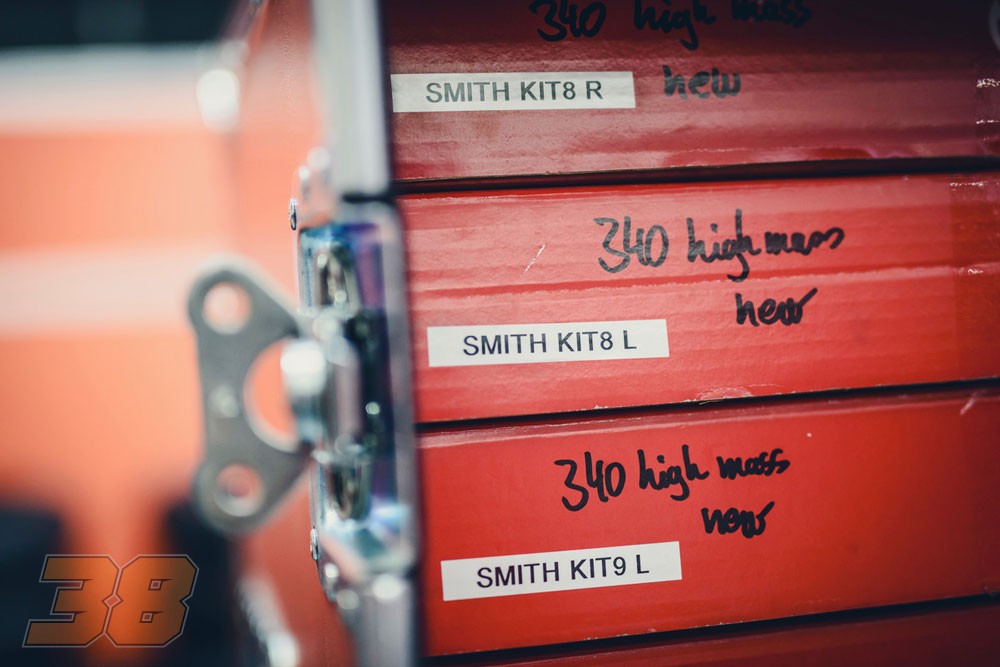 340 high mass
new
SMITH KIT8 R
340 high mass
new
SMITH KIT8 L
340 high mass
new
SMITH KIT9 L
38